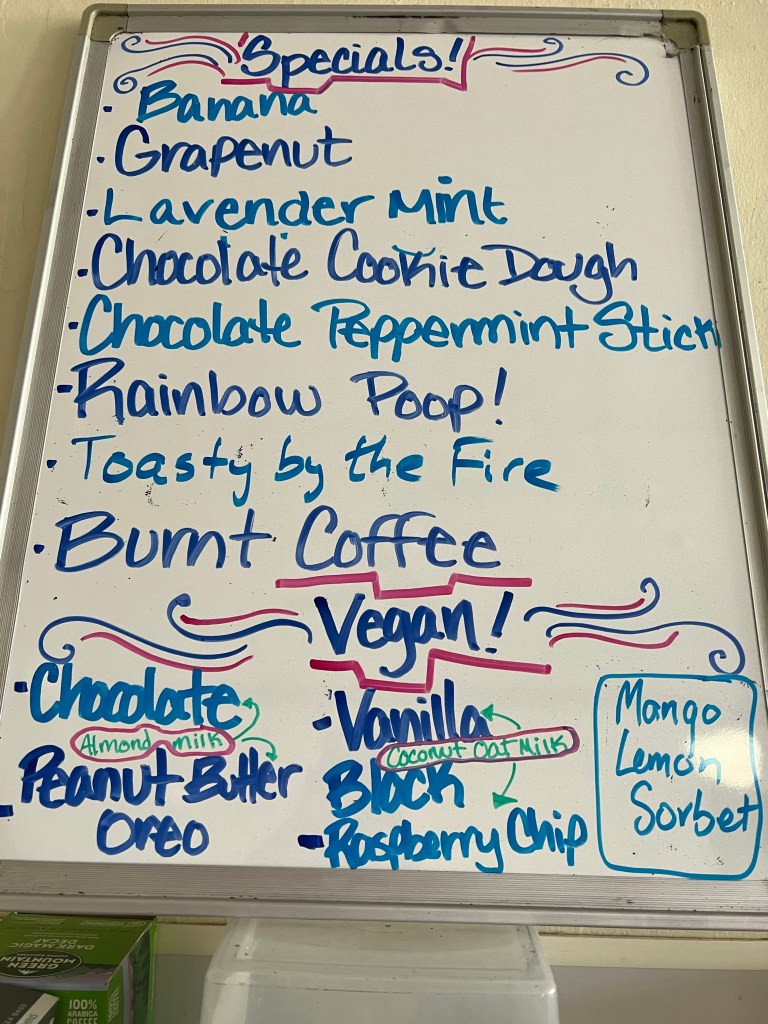 Specials!
· Banana
· Grapenut
· Lavender Mint
· Chocolate Cookie Dough
· Chocolate Peppermint Stick
- Rainbow Poop!
· Toasty by the Fire
· Burnt Coffee
Vegan!
- Chocolate
Almond milk
- Peanut Butter
Oreo
- Vanilla
Coconut Oat Milk
Black
- Raspberry Chip
Mango
Lemon
Sorbet
GREEN
MOUNTAIN
DARK MAGIC
DECAF
100%
ARABICA
COFFEE